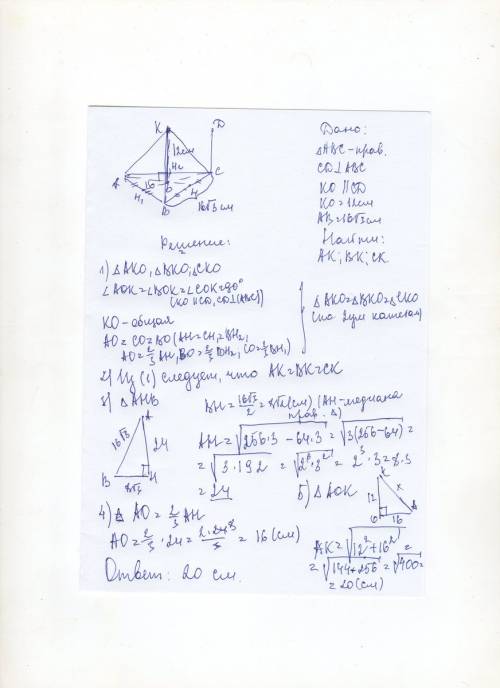 K
D
12см
A
16
O
C
H1
B
H
16√3 см
Дано:
△ABC - прав.
CD⊥ABC
KO ∥ CD
KO = 12см
AB = 16√3 см
Найти:
AK; BK; CK
Решение:
1) △AKO, △BKO, △CKO
∠AOK = ∠BOK = ∠COK = 90°
(KO ∥ CD, CD⊥(ABC))
KO - общая
AO = CO = BO (AH = CH1 = BH2,
AO = 2/3 AH, BO = 2/3 BH2, CO = 2/3 BH1)
△AKO = △BKO = △CKO
(по двум катетам)
2) Из (1) следует, что AK = BK = CK
3) △AHB
BH = 16√3/2 = 8√3 (см) (AH - медиана
прав. △)
A
16√3
24
B
H
8√3
AH = √256·3 − 64·3 = √3(256−64) =
= √3·192 = √2⁶·3² = 2³·3 = 8·3
= 24
4) △ AO = 2/3 AH
AO = 2/3 · 24 = 2·24⁸/3 = 16 (см)
5) △AOK
K
12
x
O
16
A
AK = √12² + 16² =
= √144 + 256 = √400 =
= 20 (см)
Ответ: 20 см.